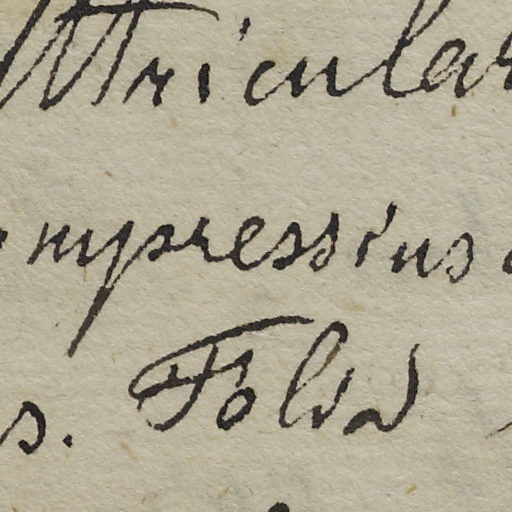 Utricular
mpressius
s. Folia